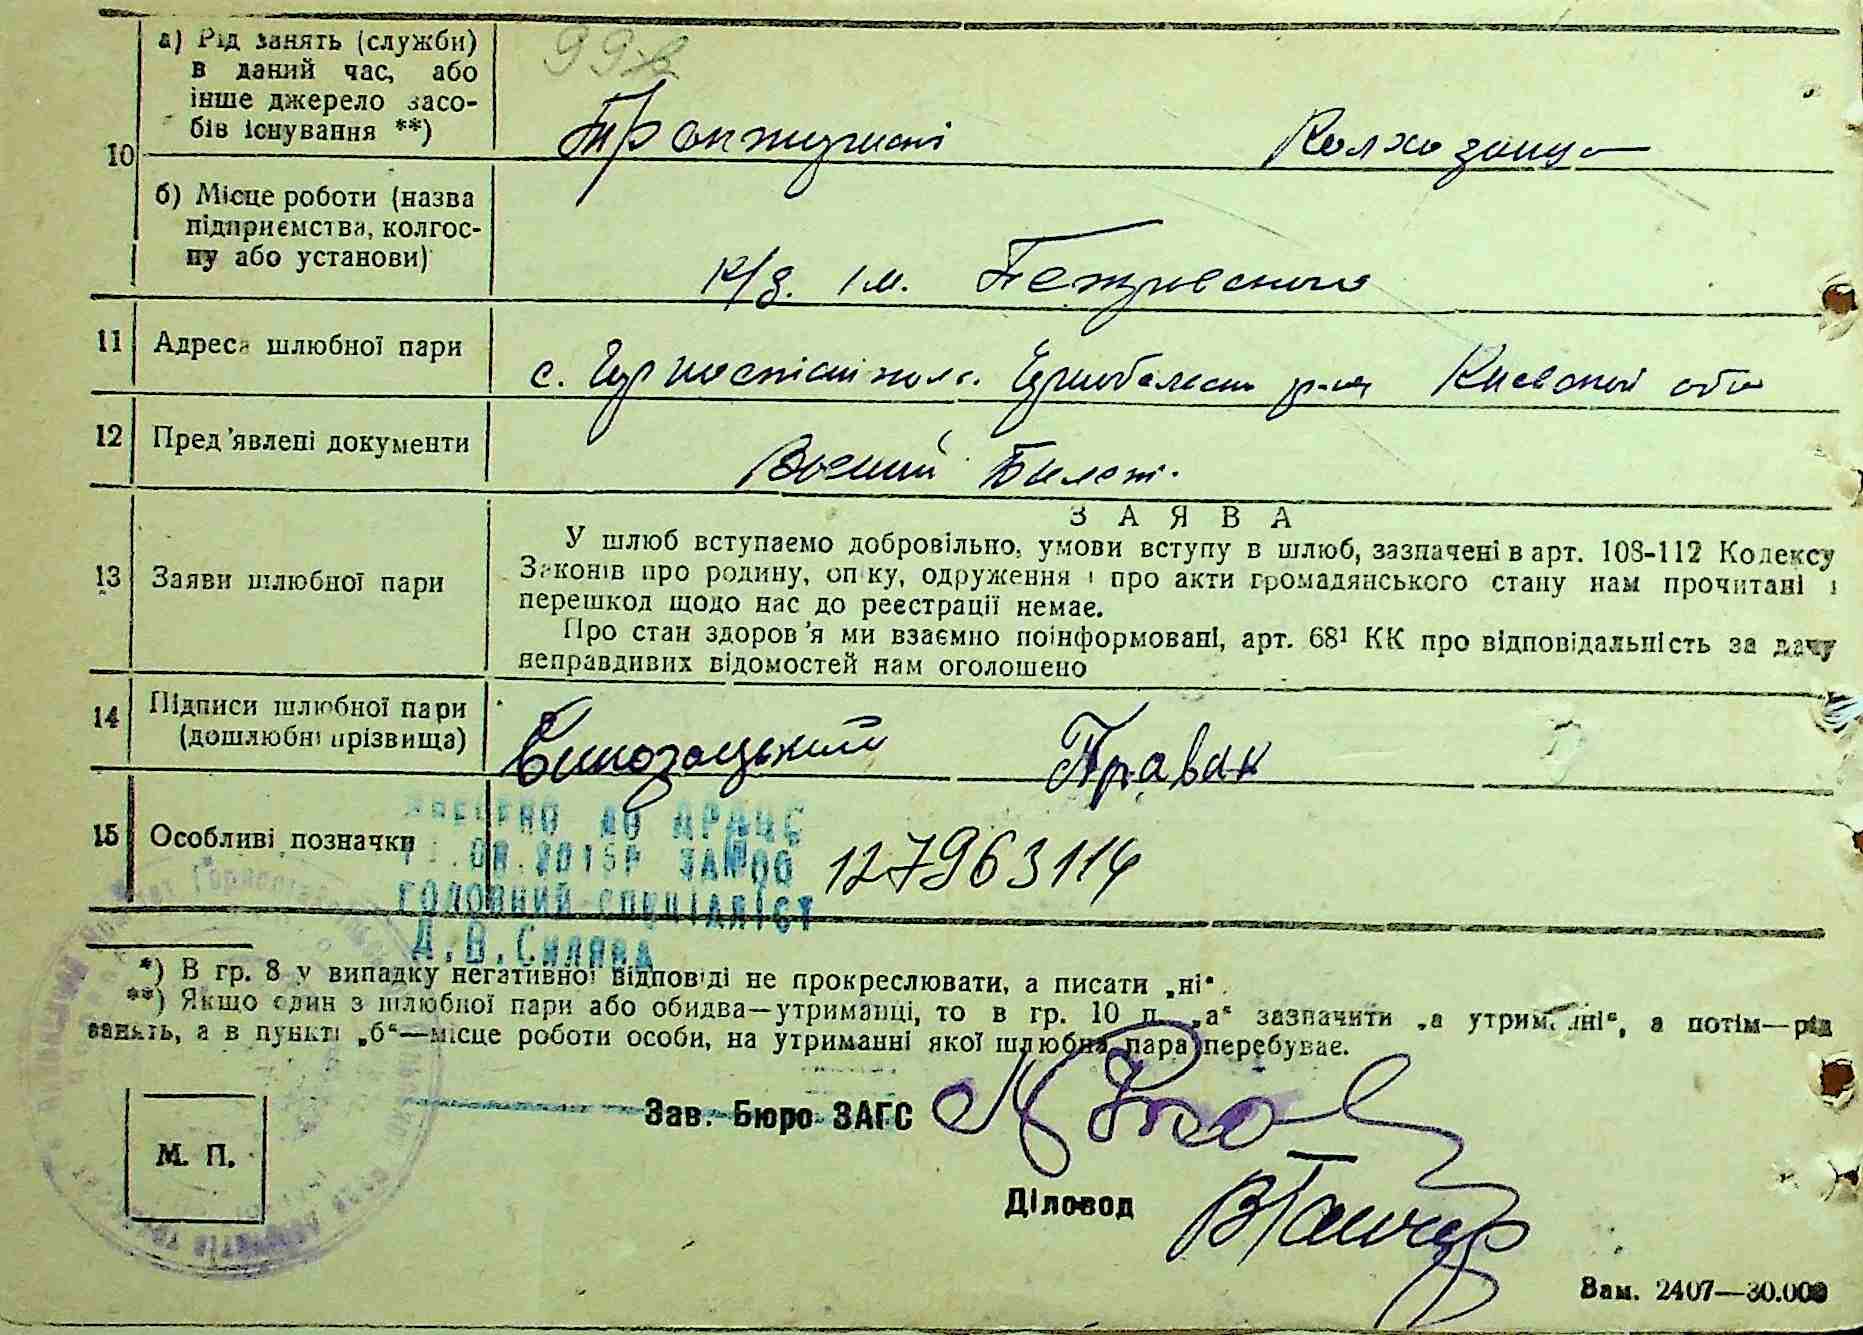 10
а) Рід занять (служби)
в даний час, або
інше джерело засо-
бів існування **)
99
Колхозниця
б) Місце роботи (назва
підприємства, колгос-
пу або установи)
к/г. ім. Петровского
11 Адреса шлюбної пари
с. Чорнобильськ р-на Киевской обл
12 Пред'явлені документи
Воений Билет.
13 Заяви шлюбної пари
ЗАЯВА
У шлюб вступаємо добровільно, умови вступу в шлюб, зазначені в арт. 108-112 Кодексу
Законів про родину, опіку, одруження і про акти громадянського стану нам прочитані і
перешкод щодо нас до реєстрації немає.
Про стан здоров'я ми взаємно поінформовані, арт. 68¹ КК про відповідальність за дачу
неправдивих відомостей нам оголошено
14 Підписи шлюбної пари
(дошлюбні прізвища)
Правак
15 Особливі позначки
127963114
ВНЕСЕНО ДО ДРАЦС
.08.2015Р ЗА№00
ГОЛОВНИЙ СПЕЦІАЛІСТ
Д.В.Силява
*) В гр. 8 у випадку негативної відповіді не прокреслювати, а писати „ні“.
**) Якщо один з шлюбної пари або обидва—утриманці, то в гр. 10 п. „а“ зазначити „а утриманні“, а потім—рід
занять, а в пункті „б“—місце роботи особи, на утриманні якої шлюбна пара перебуває.
Зав. Бюро ЗАГС
М. П.
Діловод
Зам. 2407—30.000